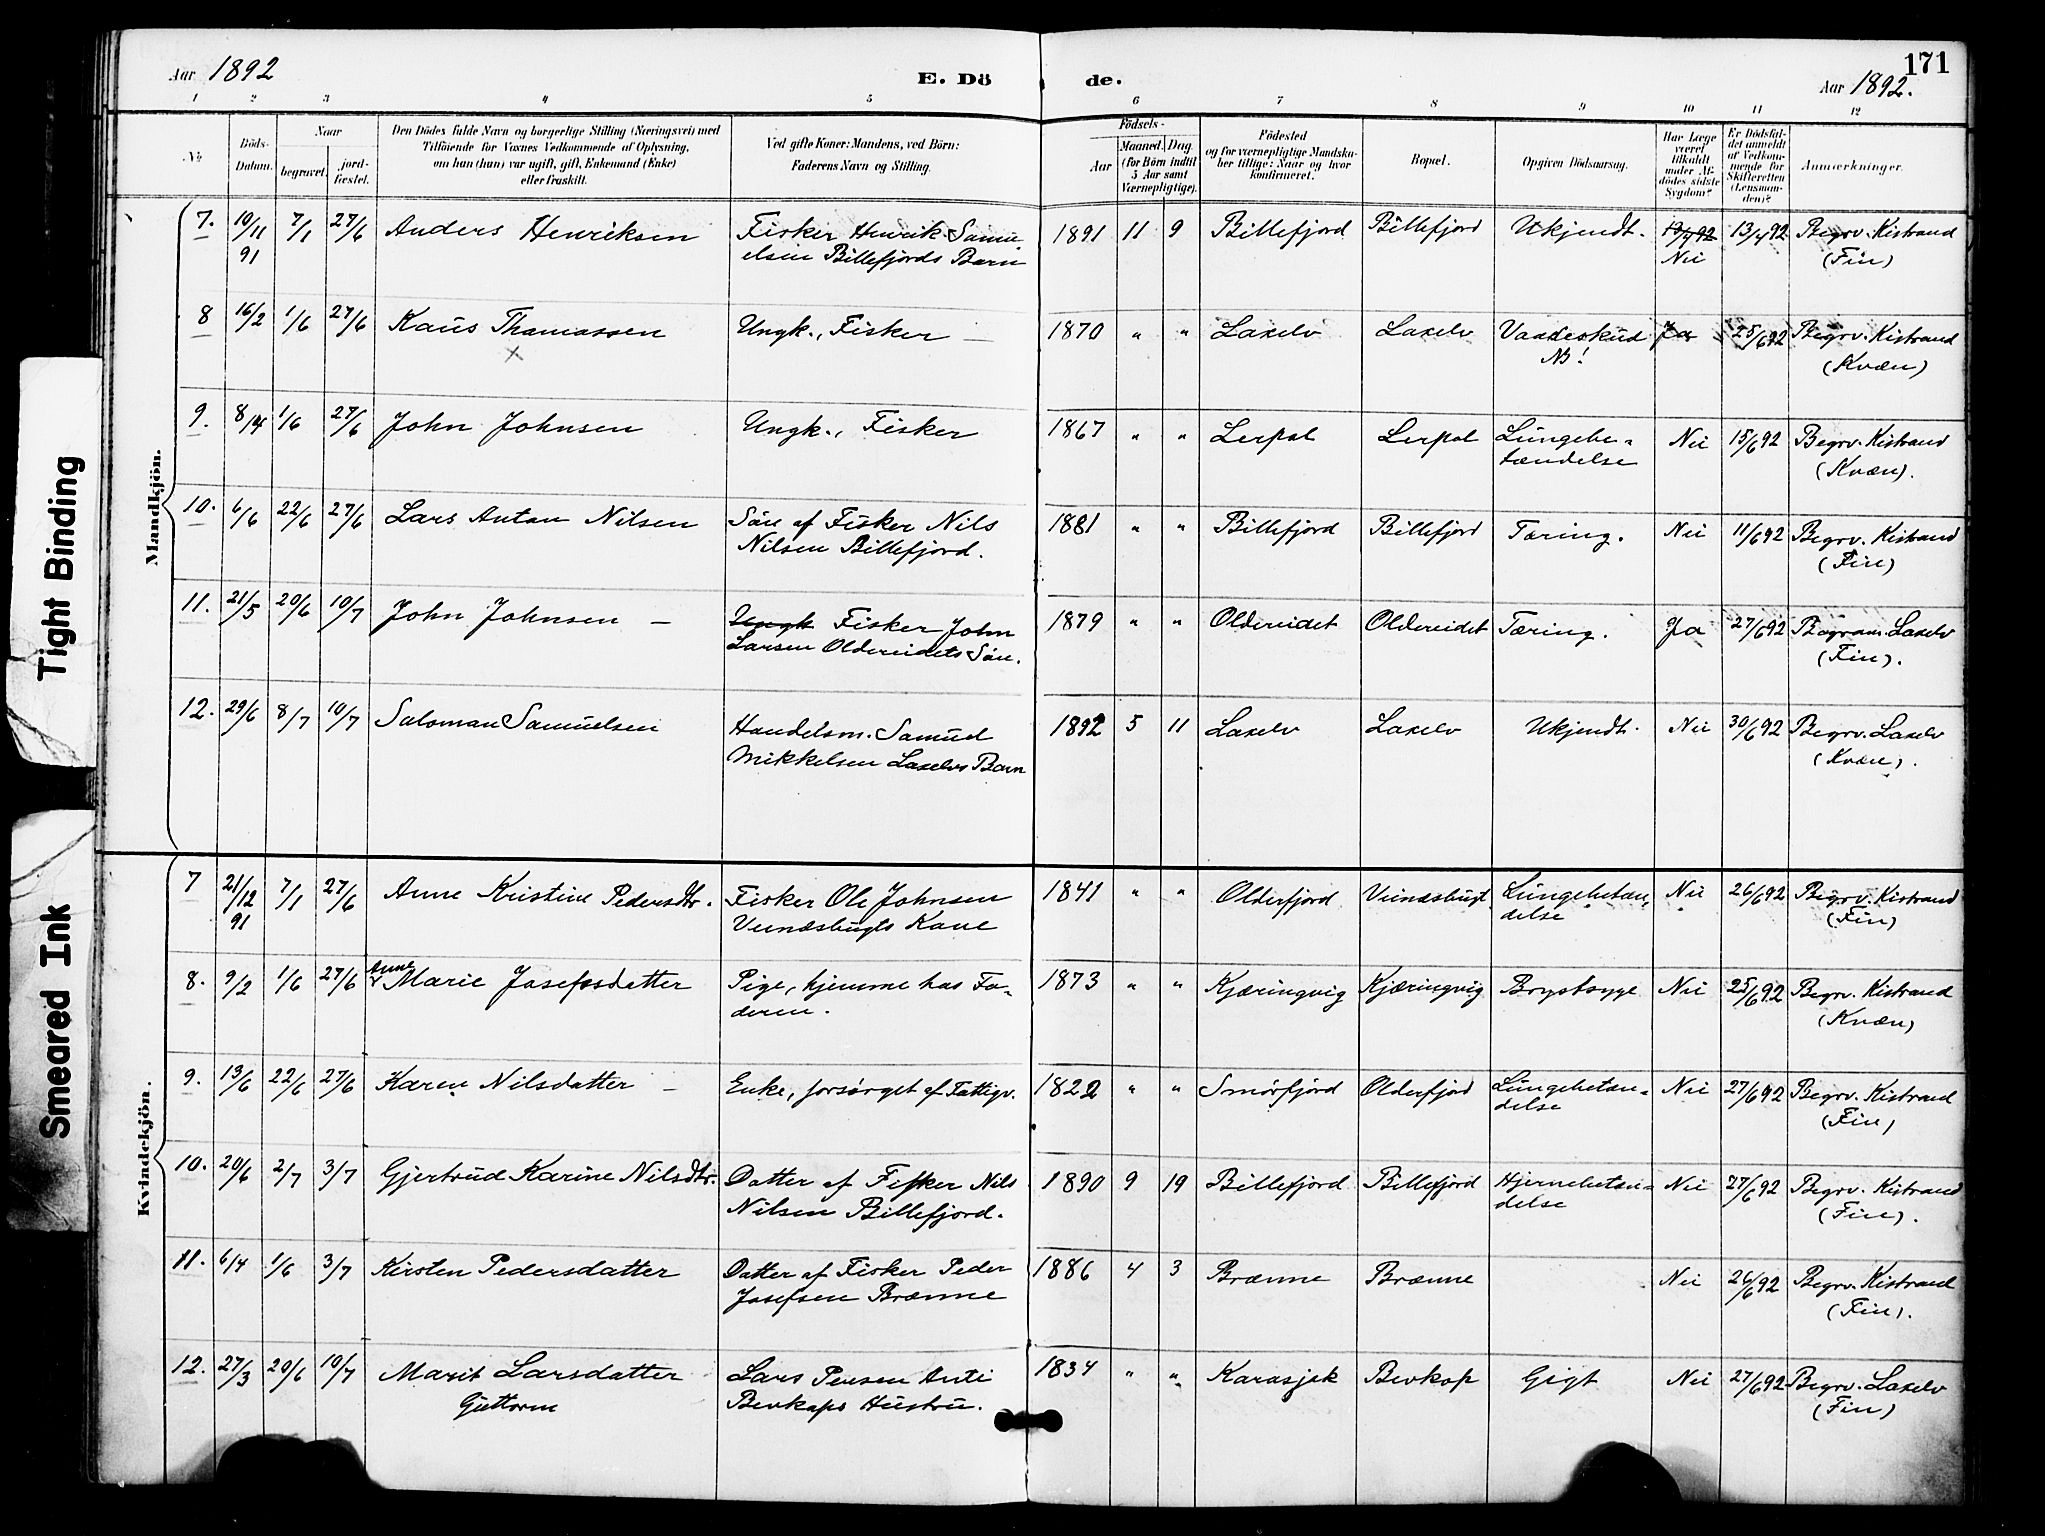 Aar 1892
E. Dö
de.
171
Aar 1892.
1 2 3 4 5 6 7 8 9 10 11 12
No
Döds-
Datum.
Naar
begravet.
jord-
fæstet.
Den Dödes fulde Navn og borgerlige Stilling (Næringsvei) med
Tilföiende for Voxnes Vedkommende af Oplysning,
om hun (han) var ugift, gift, Enkemand (Enke)
eller fraskilt.
Ved gifte Koner: Mandens, ved Börn:
Faderens Navn og Stilling.
Födsels-
Aar
Maaned. Dag.
(for Börn indtil
5 Aar samt
Værnepligtige).
Födested
og for værnepligtige Mandska-
ber tillige: Naar og hvor
konfirmeret.
Bopæl.
Opgiven Dödsaarsag.
Har Læge
været
tilkaldt
under Af-
dödes sidste
Sygdom?
Er Dödsfal-
det anmeldt
af Vedkom-
mende for
Skifteretten
(Lensman-
den)?
Anmærkninger.
Mandkjön.
7. 10/11 91 7/1 27/6 Anders Henriksen Fisker Henrik Samu-
elsen Billefjords Barn 1891 11 9 Billefjord Billefjord Ukjendt. 13/4 92 Begrv. Kistrand
Nei (Fin)
8 16/2 1/6 27/6 Kaus Thomassen Ungk., Fisker – 1870 " " Laxelv Laxelv Vaadeskud Ja 25/6 92 Begrv. Kistrand
x NB! (Kvæn)
9. 8/4 1/6 27/6 John Johnsen Ungk., Fisker 1867 " " Lerpol Lerpol Lungebe-
tændelse Nei 15/6 92 Begrv. Kistrand
(Kvæn).
10. 6/6 22/6 27/6 Lars Anton Nilsen Sön af Fisker Nils
Nilsen Billefjord. 1881 " " Billefjord Billefjord Tæring. Nei 11/6 92 Begrv. Kistrand
(Fin)
11. 21/5 20/6 10/7 John Johnsen – Ungk Fisker John
Larsen Oldereidets Sön. 1879 " " Oldereidet Oldereidet Tæring. Ja 27/6 92 Begrav. Laxelv
(Fin).
12. 29/6 8/7 10/7 Saloman Samuelsen Handelsm. Samuel
Mikkelsen Laxelvs Barn 1892 5 11 Laxelv Laxelv Ukjendt. Nei 30/6 92 Begrv. Laxelv
(Kvæn).
Kvindekjön.
7 21/12 91 7/1 27/6 Anne Kristine Pedersdtr. Fisker Ole Johnsen
Veinæsbugts Kone 1841 " " Olderfjord Veinæsbugt Lungebetæn-
delse Nei 26/6 92 Begrv. Kistrand
(Fin)
8. 9/2 1/6 27/6 Anne
Marie Josefsdatter Pige, hjemme hos Fa-
deren. 1873 " " Kjæringvig Kjæringvig Brystsyge Nei 25/6 92 Begrv. Kistrand
(Kvæn)
9. 13/6 22/6 27/6 Karen Nilsdatter – Enke, forsörget af Fattigv. 1822 " " Smörfjord Olderfjord Lungebetæn-
delse Nei 27/6 92 Begrv. Kistrand
(Fin)
10. 20/6 2/7 3/7 Gjertrud Karine Nilsdtr. Datter af Fisker Nils
Nilsen Billefjord. 1890 9 19 Billefjord Billefjord Hjernebetæn-
delse Nei 27/6 92 Begrv. Kistrand
(Fin).
11. 6/4 1/6 3/7 Kirsten Pedersdatter Datter af Fisker Peder
Josefsen Brænne 1886 4 3 Brænne Brænne Nei 26/6 92 Begrv. Kistrand
(Fin).
12. 27/3 20/6 10/7 Marit Larsdatter
Guttorm Lars Persen Anti
Bevkops Hustru. 1834 " " Karasjok Bevkop Gigt Nei 27/6 92 Begrv. Laxelv
(Fin)
Tight Binding
Smeared Ink